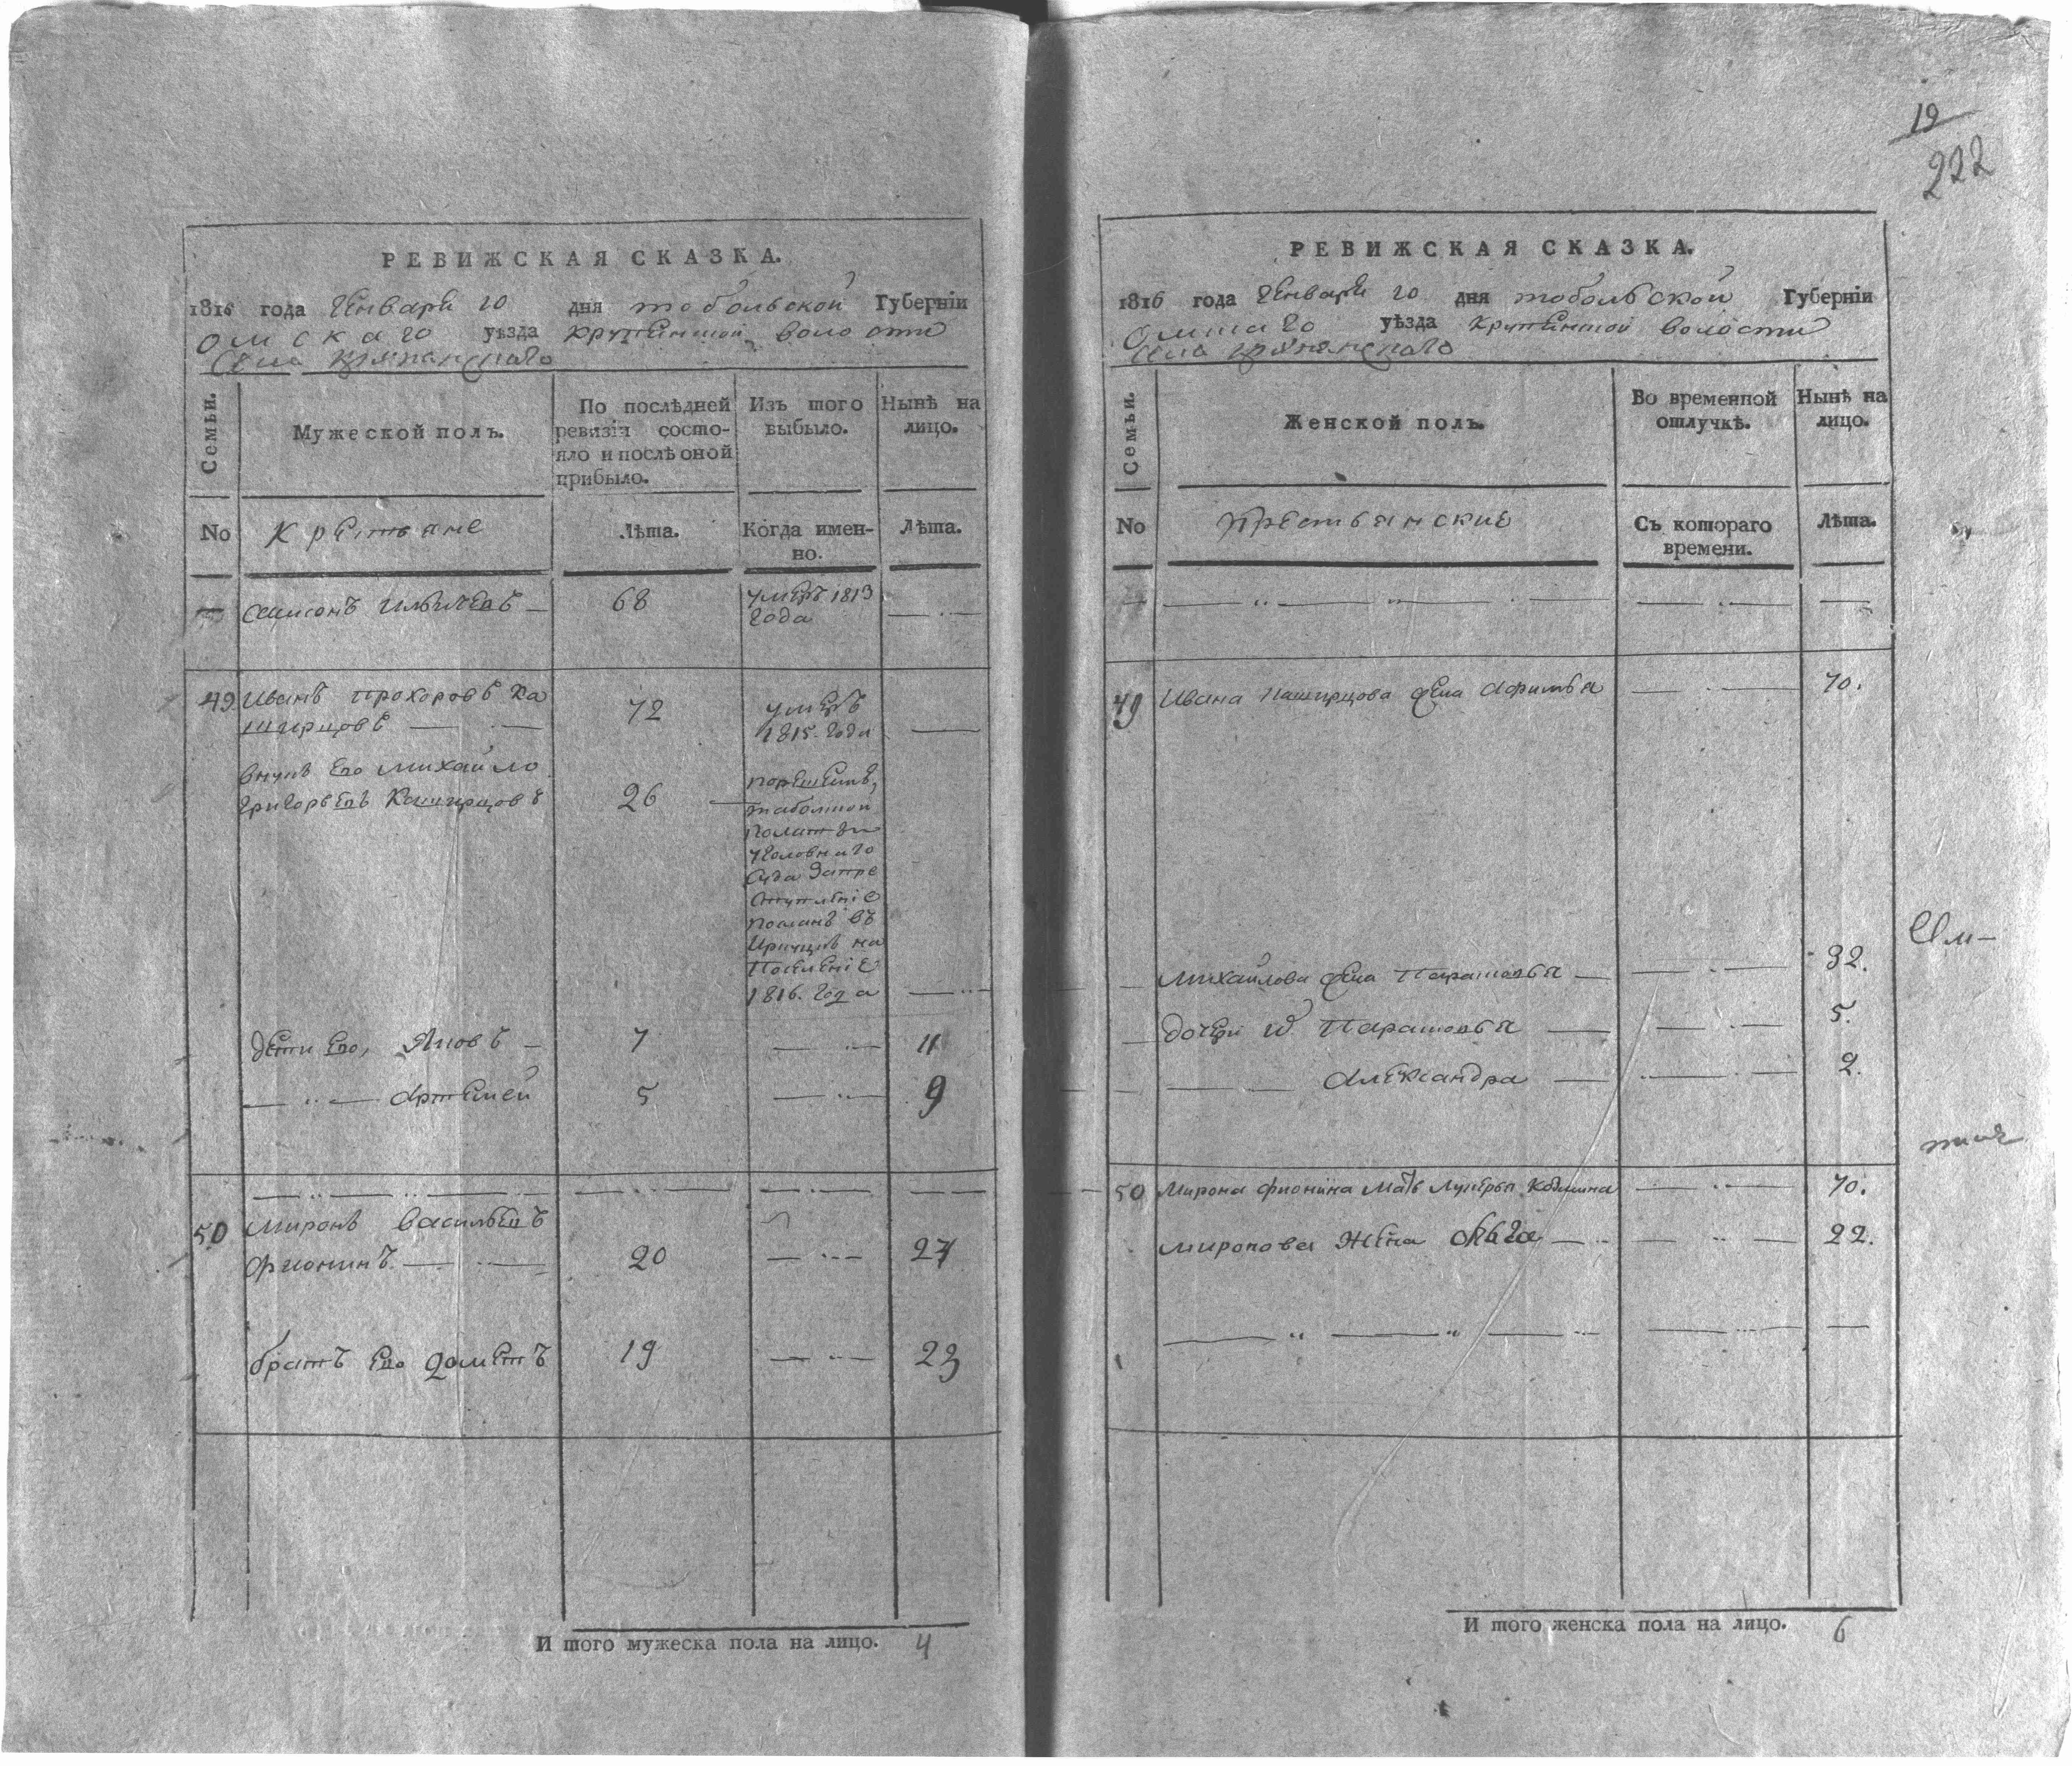 19
222
РЕВИЖСКАЯ СКАЗКА.
1816 года Генваря 20 дня тобольской Губерніи
омскаго уѣзда крутинской волости
села
Семьи.
Мужеской полъ.
По послѣдней ревизіи состояло и послѣ оной прибыло.
Изъ того выбыло.
Нынѣ на лицо.
No
Крестьяне
Лѣта.
Когда именно.
Лѣта.
Самсонъ Ильичевъ — 68 умеръ 1813
года
49. Иванъ Прохоровъ Ка
ширцовъ 72 умеръ
1815. года
внукъ его Михайло
Григорьевъ Каширцовъ 26
тобольской
полаты
уголовнаго
суда запре
ступленіе
посланъ въ
на
Поселеніе
1816. года
дети его, Яковъ — 7 11
Артемей 5 9
50 Миронъ Васильевъ
Фионинъ. 20 24
братъ его Дометъ 19 23
И того мужеска пола на лицо. 4
РЕВИЖСКАЯ СКАЗКА.
1816 года Генваря 20 дня тобольской Губерніи
Омскаго уѣзда крутинской волости
села
Семьи.
Женской полъ.
Во временной отлучкѣ.
Нынѣ на лицо.
No
Крестьянские
Съ котораго времени.
Лѣта.
49 Ивана Каширцова жена Афимья 70.
Михайлова жена Парасковья — 32.
дочери Парасковья 5.
Александра 2.
50 Мирона Фионина Мать Лукерья 70.
Миронова жена Олга 22.
И того женска пола на лицо. 6